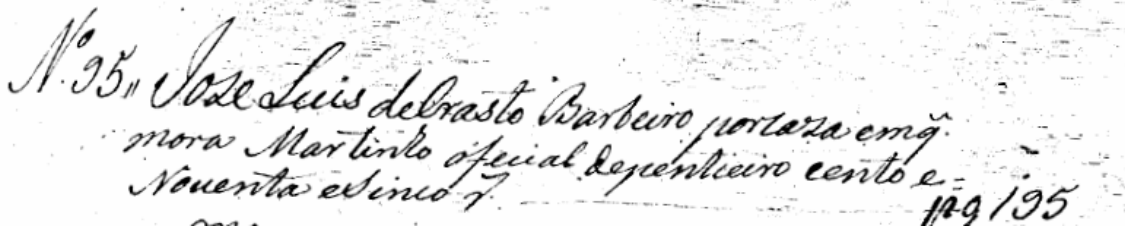 N.º 95,, Joze Luis deCrasto Barbeiro porcaza emq̃.
mora Martinho oficial depenticiro cento e=
Noventa eSinco r.
pg 195